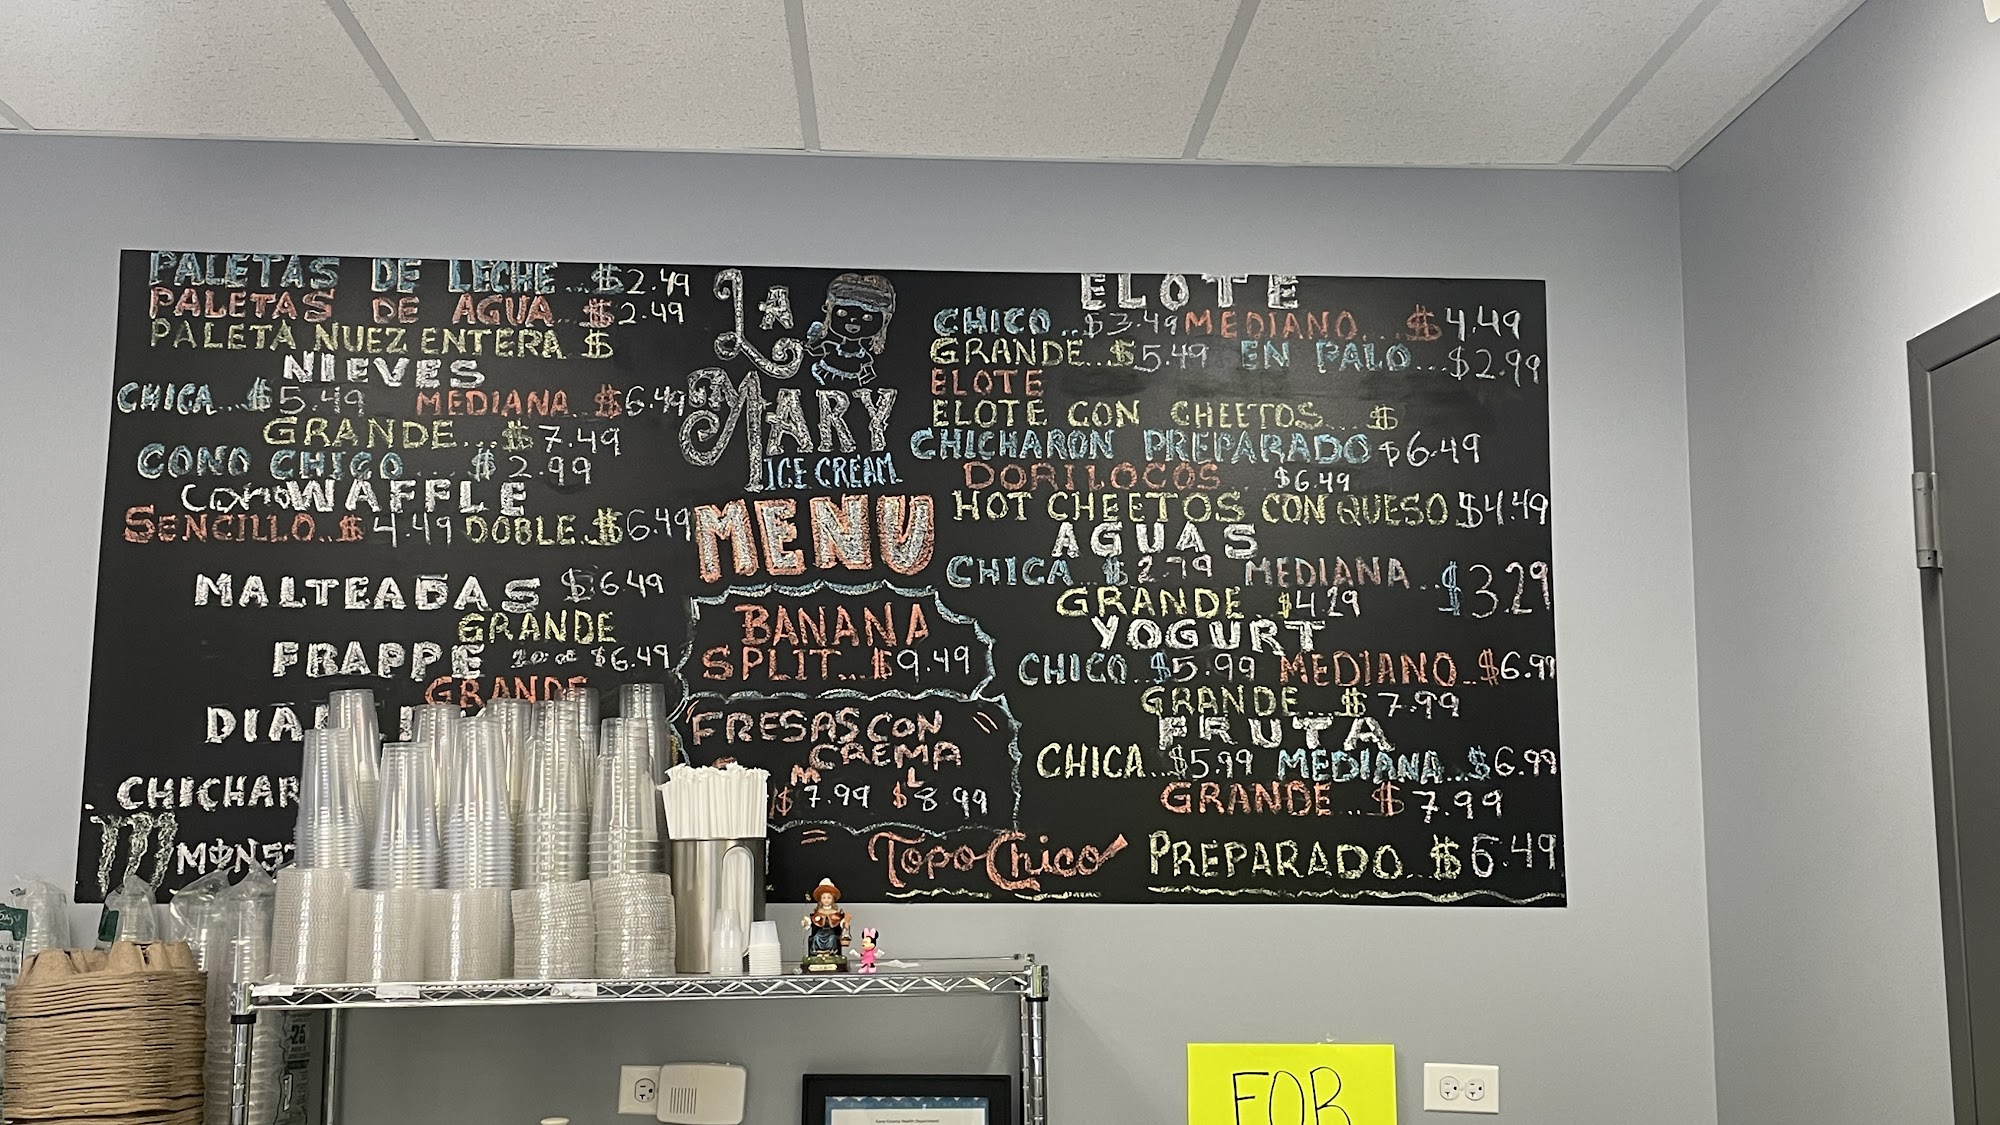 PALETAS DE LECHE...$2.49
PALETAS DE AGUA...$2.49
PALETA NUEZ ENTERA $
NIEVES
CHICA...$5.49 MEDIANA...$6.49
GRANDE...$7.49
CONO CHICO....$2.99
Cono WAFFLE
SENCILLO..$4.49 DOBLE..$6.49
MALTEADAS $6.49
GRANDE
FRAPPE $6.49
GRANDE
LA
MARY
ICE CREAM
MENU
BANANA
SPLIT...$9.49
FRESAS CON
CREMA
M L
$7.99 $8.99
ELOTE
CHICO..$3.49 MEDIANO...$4.49
GRANDE..$5.49 EN PALO...$2.99
ELOTE
ELOTE CON CHEETOS..$
CHICHARON PREPARADO $6.49
DORILOCOS. $6.49
HOT CHEETOS CON QUESO $4.49
AGUAS
CHICA...$2.79 MEDIANA...$3.29
GRANDE..$4.29
YOGURT
CHICO..$5.99 MEDIANO..$6.99
GRANDE..$7.99
FRUTA
CHICA..$5.99 MEDIANA..$6.99
GRANDE...$7.99
Topo Chico PREPARADO..$6.49
FOR